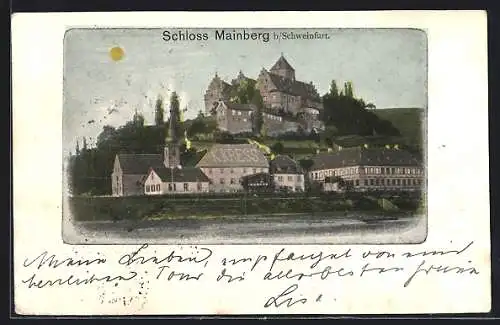 Schloss Mainberg b/Schweinfurt.
Meine Lieben, empfanget von mir
herzlichen, Tour die allerbesten Grüsse
Lisa.